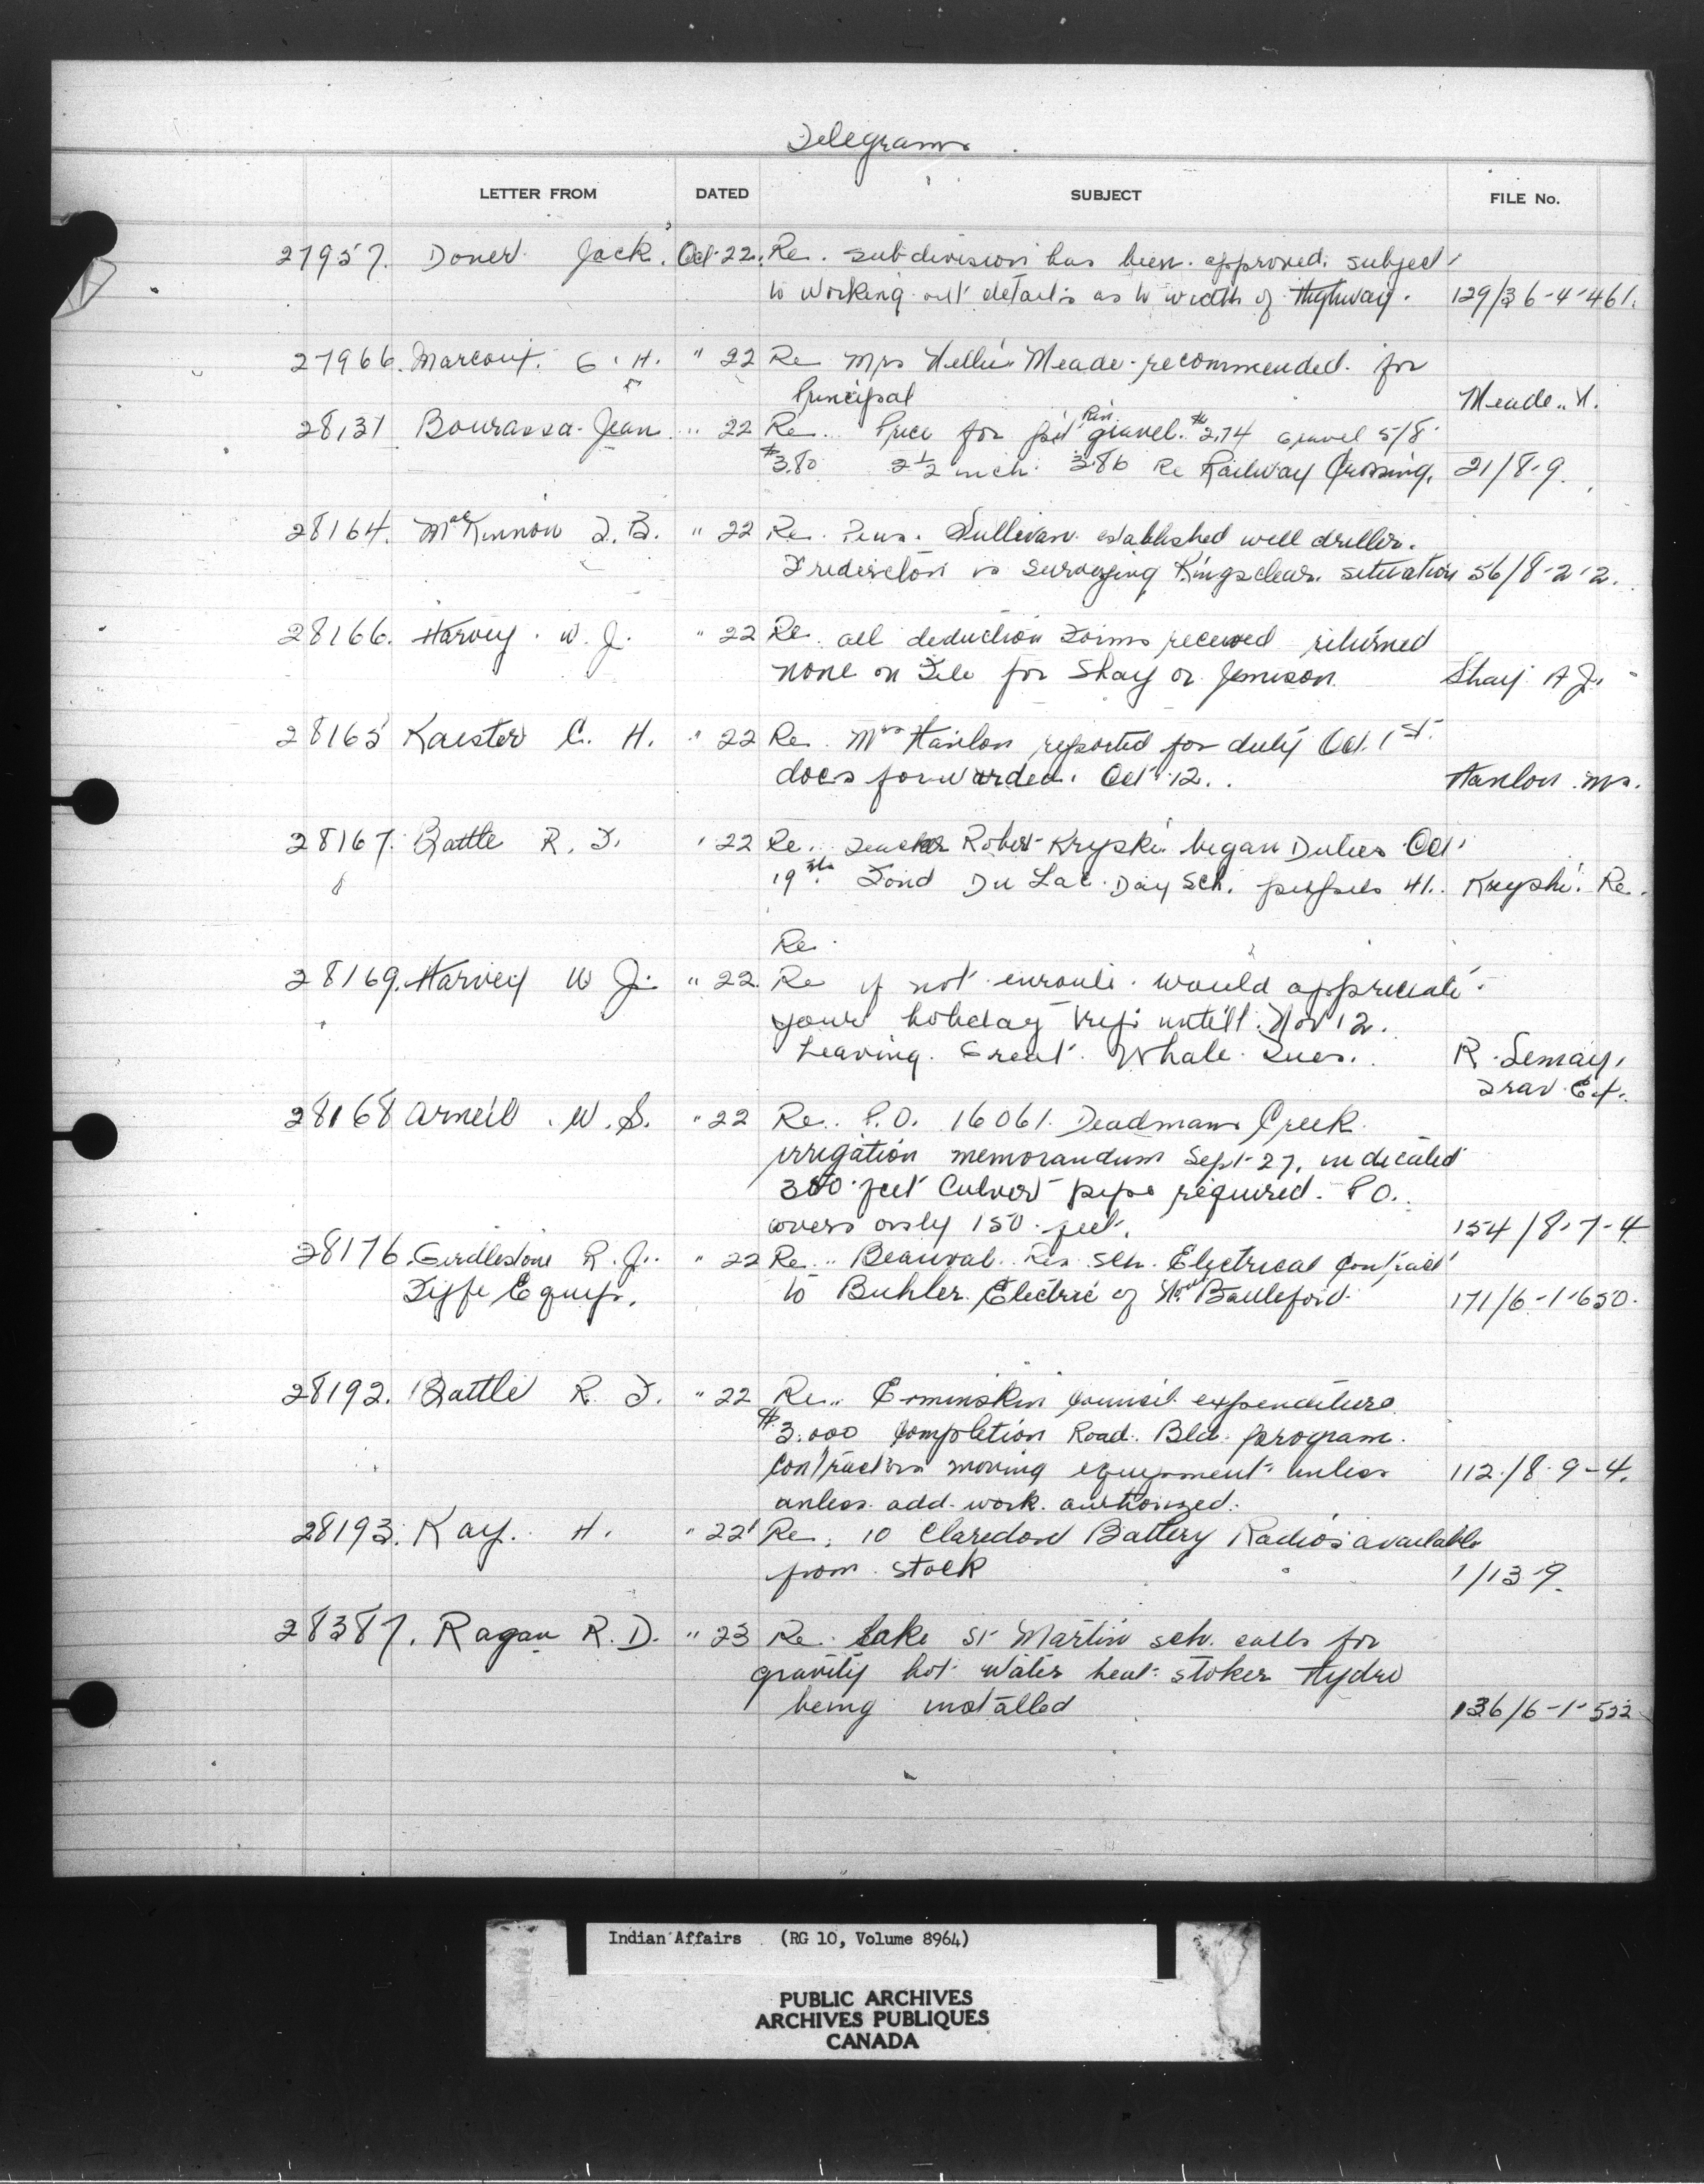 Telegrams.
LETTER FROM DATED SUBJECT FILE No.
27957. Doner Jack. Oct 22. Re. subdivision has been approved. subject
to working out details as to width of Highway. 129/36-4-461.
27966. Marcoux. G. H. " 22 Re Mrs Nellie Meade recommended for
Principal Meade. N.
28131 Bourassa Jean " 22 Re. Price for pit Run gravel. $2.74 Gravel 5/8
$3.80 2½ inch. 3.86 Re Railway Crossing. 21/8-9.
28164. MacKinnon D.B. " 22 Re. Sullivan established well driller.
Fredericton is surveying Kingsclear. situation 56/8-2-2.
28166. Harvey. W. J. " 22 Re. all deduction Forms received returned
none on File for Shay or Jemison. Shay A J.
28165 Kaester C. H. " 22 Re. Mrs Hanlon reported for duty Oct. 1st.
docs forwarded. Oct. 12. Hanlon. Mrs.
28167. Battle R. F. " 22 Re. Teacher Robert Kryski began Duties Oct.
19th. Fond Du Lac. Day Sch. pupils 41. Kryski. Re.
Re.
28169. Harvey W J. " 22. Re if not enroute. would appreciate
your holiday until Nov 12.
Leaving. Great. Whale. Tues. R. Lemay.
Trav. Ex.
28168 Arneil. W. S. " 22 Re. P.O. 16061. Deadmans Creek.
irrigation memorandum Sept 27. indicated
300 feet Culvert pipe required. P O.
covers only 150 feet. 154/8-7-4
28176. Girdlestone R. J. " 22 Re. Beauval. Res. Sch. Electrical Contract
Equip. to Buhler Electric of Nor. Battleford. 171/6-1-650.
28192. Battle R. F. " 22 Re. Erminskin Council expenditure
$3.000 completion Road. Bld. program.
contractors moving equipment unless 112./8-9-4.
unless add. work. authorized.
28193. Kay. H. " 22 Re. 10 Claredon Battery Radios available
from stock 1/13-9.
28387. Ragan R. D. " 23 Re. Lake St Martin sch. calls for
gravity hot water heat. stoker Hydro
being installed 136/6-1-522
Indian Affairs (RG 10, Volume 8964)
PUBLIC ARCHIVES
ARCHIVES PUBLIQUES
CANADA